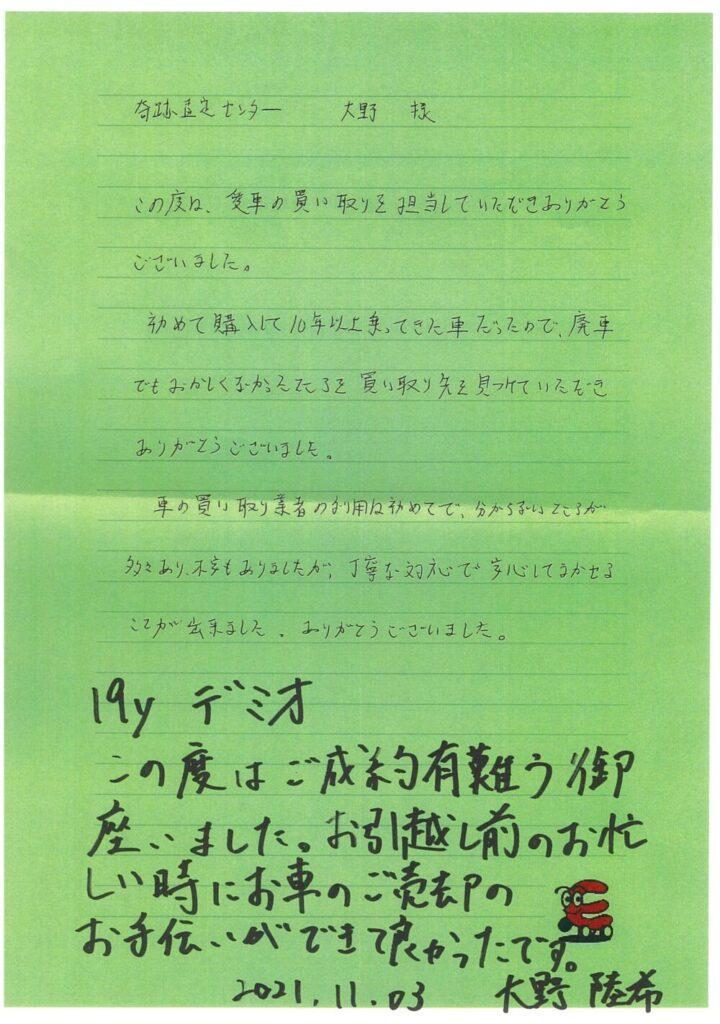 奇跡査定センター　大野　様
この度は、愛車の買い取りを担当していただきありがとう
ございました。
初めて購入して10年以上乗ってきた車だったので、廃車
でもおかしくなかったところを買い取り先を見つけていただき
ありがとうございました。
車の買い取り業者の利用は初めてで、分からないところが
多々あり、不安もありましたが、丁寧な対応で安心してまかせる
ことが出来ました。ありがとうございました。
19y デミオ
この度はご成約有難う御
座いました。お引越し前のお忙
しい時にお車のご売却の
お手伝いができて良かったです。
2021.11.03 大野 陸希